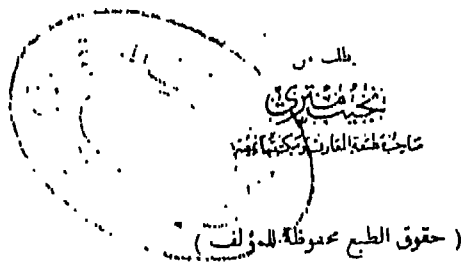 يطلب من
نجيب متري
صاحب مطبعة المعارف ومكتبتها بمصر
( حقوق الطبع محفوظة للمؤلف )